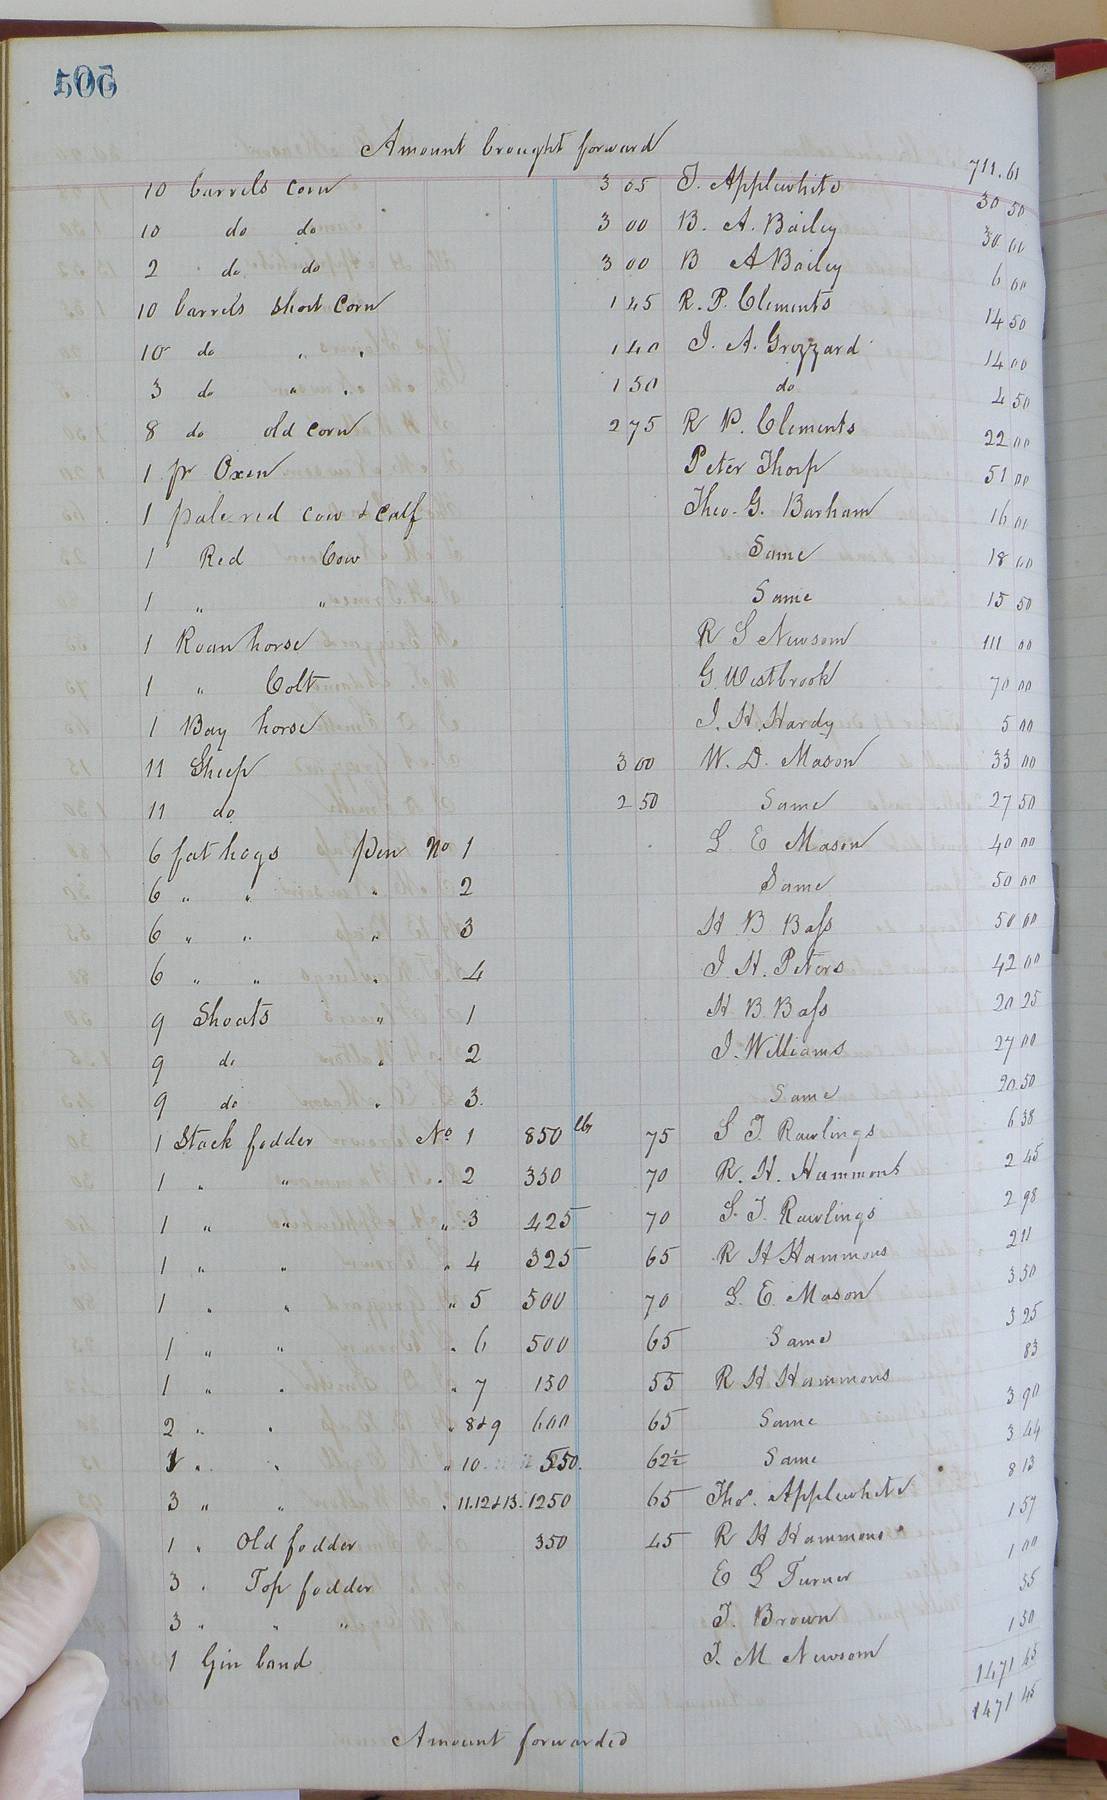 506
Amount brought forward 711.61
10 barrels corn 3 05 T. Applewhite 30 50
10 do do 3 00 B. A. Bailey 30 00
2 do do 3 00 B A Bailey 6 00
10 barrels short corn 1 45 R. P. Clements 14 50
10 do " " 1 40 J. A. Grizzard 14 00
3 do " " 1 50 do 4 50
8 do old corn 2 75 R P. Clements 22 00
1 pr Oxen Peter Thorp 51 00
1 pale red cow & calf Theo. G. Barham 16 00
1 Red Cow Same 18 00
1 " " Same 15 50
1 Roan horse R S Newsom 111 00
1 " Colt G Westbrook 70 00
1 Bay horse J. H. Hardy 5 00
11 Sheep 3 00 W. D. Mason 33 00
11 do 2 50 Same 27 50
6 fat hogs pen No 1 L E Mason 40 00
6 " " " 2 Same 50 00
6 " " " 3 H B Bass 50 00
6 " " " 4 J H. Peters 42 00
9 Shoats " 1 H B Bass 20 25
9 do " 2 J. Williams 27 00
9 do " 3. Same 20.50
1 Stack fodder No 1 850 lbs 75 S T Rawlings 6 38
1 " " " 2 350 70 R. H. Hammons 2 45
1 " " " 3 425 70 S. T. Rawlings 2 98
1 " " " 4 325 65 R H Hammons 2 11
1 " " " 5 500 70 L. E. Mason 3 50
1 " " " 6 500 65 Same 3 25
1 " " " 7 150 55 R H Hammons 83
2 " " " 8&9 600 65 Same 3 90
1 " " " 10 550. 62½ Same 3 44
3 " " " 11.12&13. 1250 65 Thos. Applewhite 8 13
1 " Old fodder 350 45 R H Hammons 1 57
3 " Top fodder E G Turner 1 00
3 " " " T. Brown 55
1 Gin band T. M Newsom 1 50
1471 45
1471 45
Amount forwarded